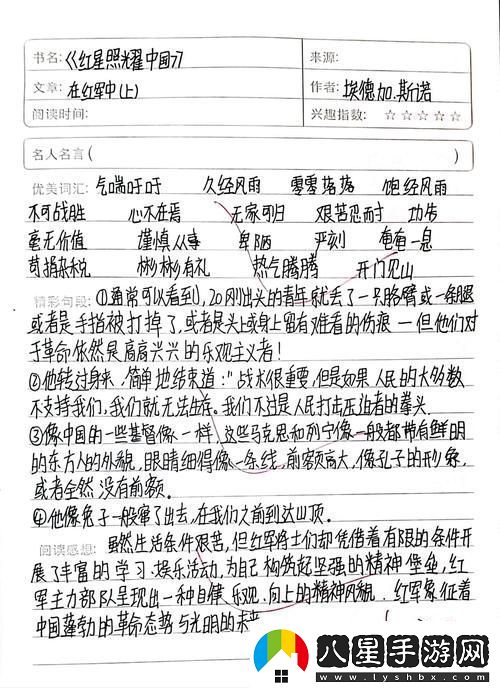 书名:《红星照耀中国》
来源:
文章: 在红军中(上)
作者: 埃德加.斯诺
阅读时间:
兴趣指数: ☆ ☆ ☆ ☆ ☆
名人名言( )
优美词汇: 气喘吁吁 久经风雨 零零落落 饱经风雨
不可战胜 心不在焉 无家可归 艰苦忍耐 功伟
毫无价值 谨慎从事 卑陋 严刻 奄奄一息
苛捐杂税 彬彬有礼 热气腾腾 开门见山
精彩句段: ①通常可以看到,20刚出头的青年就丢了一只胳臂或一条腿
或者是手指被打掉了,或者是头上或身上留有难看的伤痕—但他们对
于革命依然是高高兴兴的乐观主义者!
②他转过身来,简单地结束道:"战术很重要,但是如果人民的大多数
不支持我们,我们就无法生存。我们不过是人民打击压迫者的拳头.
③像中国的一些基督像一样,这些马克思和列宁像一般都带有鲜明
的东方人的外貌,眼睛细得像一条线,前额高大,像孔子的形象,
或者全然没有前额。
④他像兔子一般窜了出去,在我们之前到达山顶。
阅读感想: 虽然生活条件艰苦,但红军将士们却凭借着有限的条件开
展了丰富的学习.娱乐活动,为自己构筑起坚强的精神堡垒,红
军主力部队呈现出一种自律.乐观.向上的精神风貌.红军象征着
中国蓬勃的革命态势与光明的未来
八星手游网
www.lyshbx.com